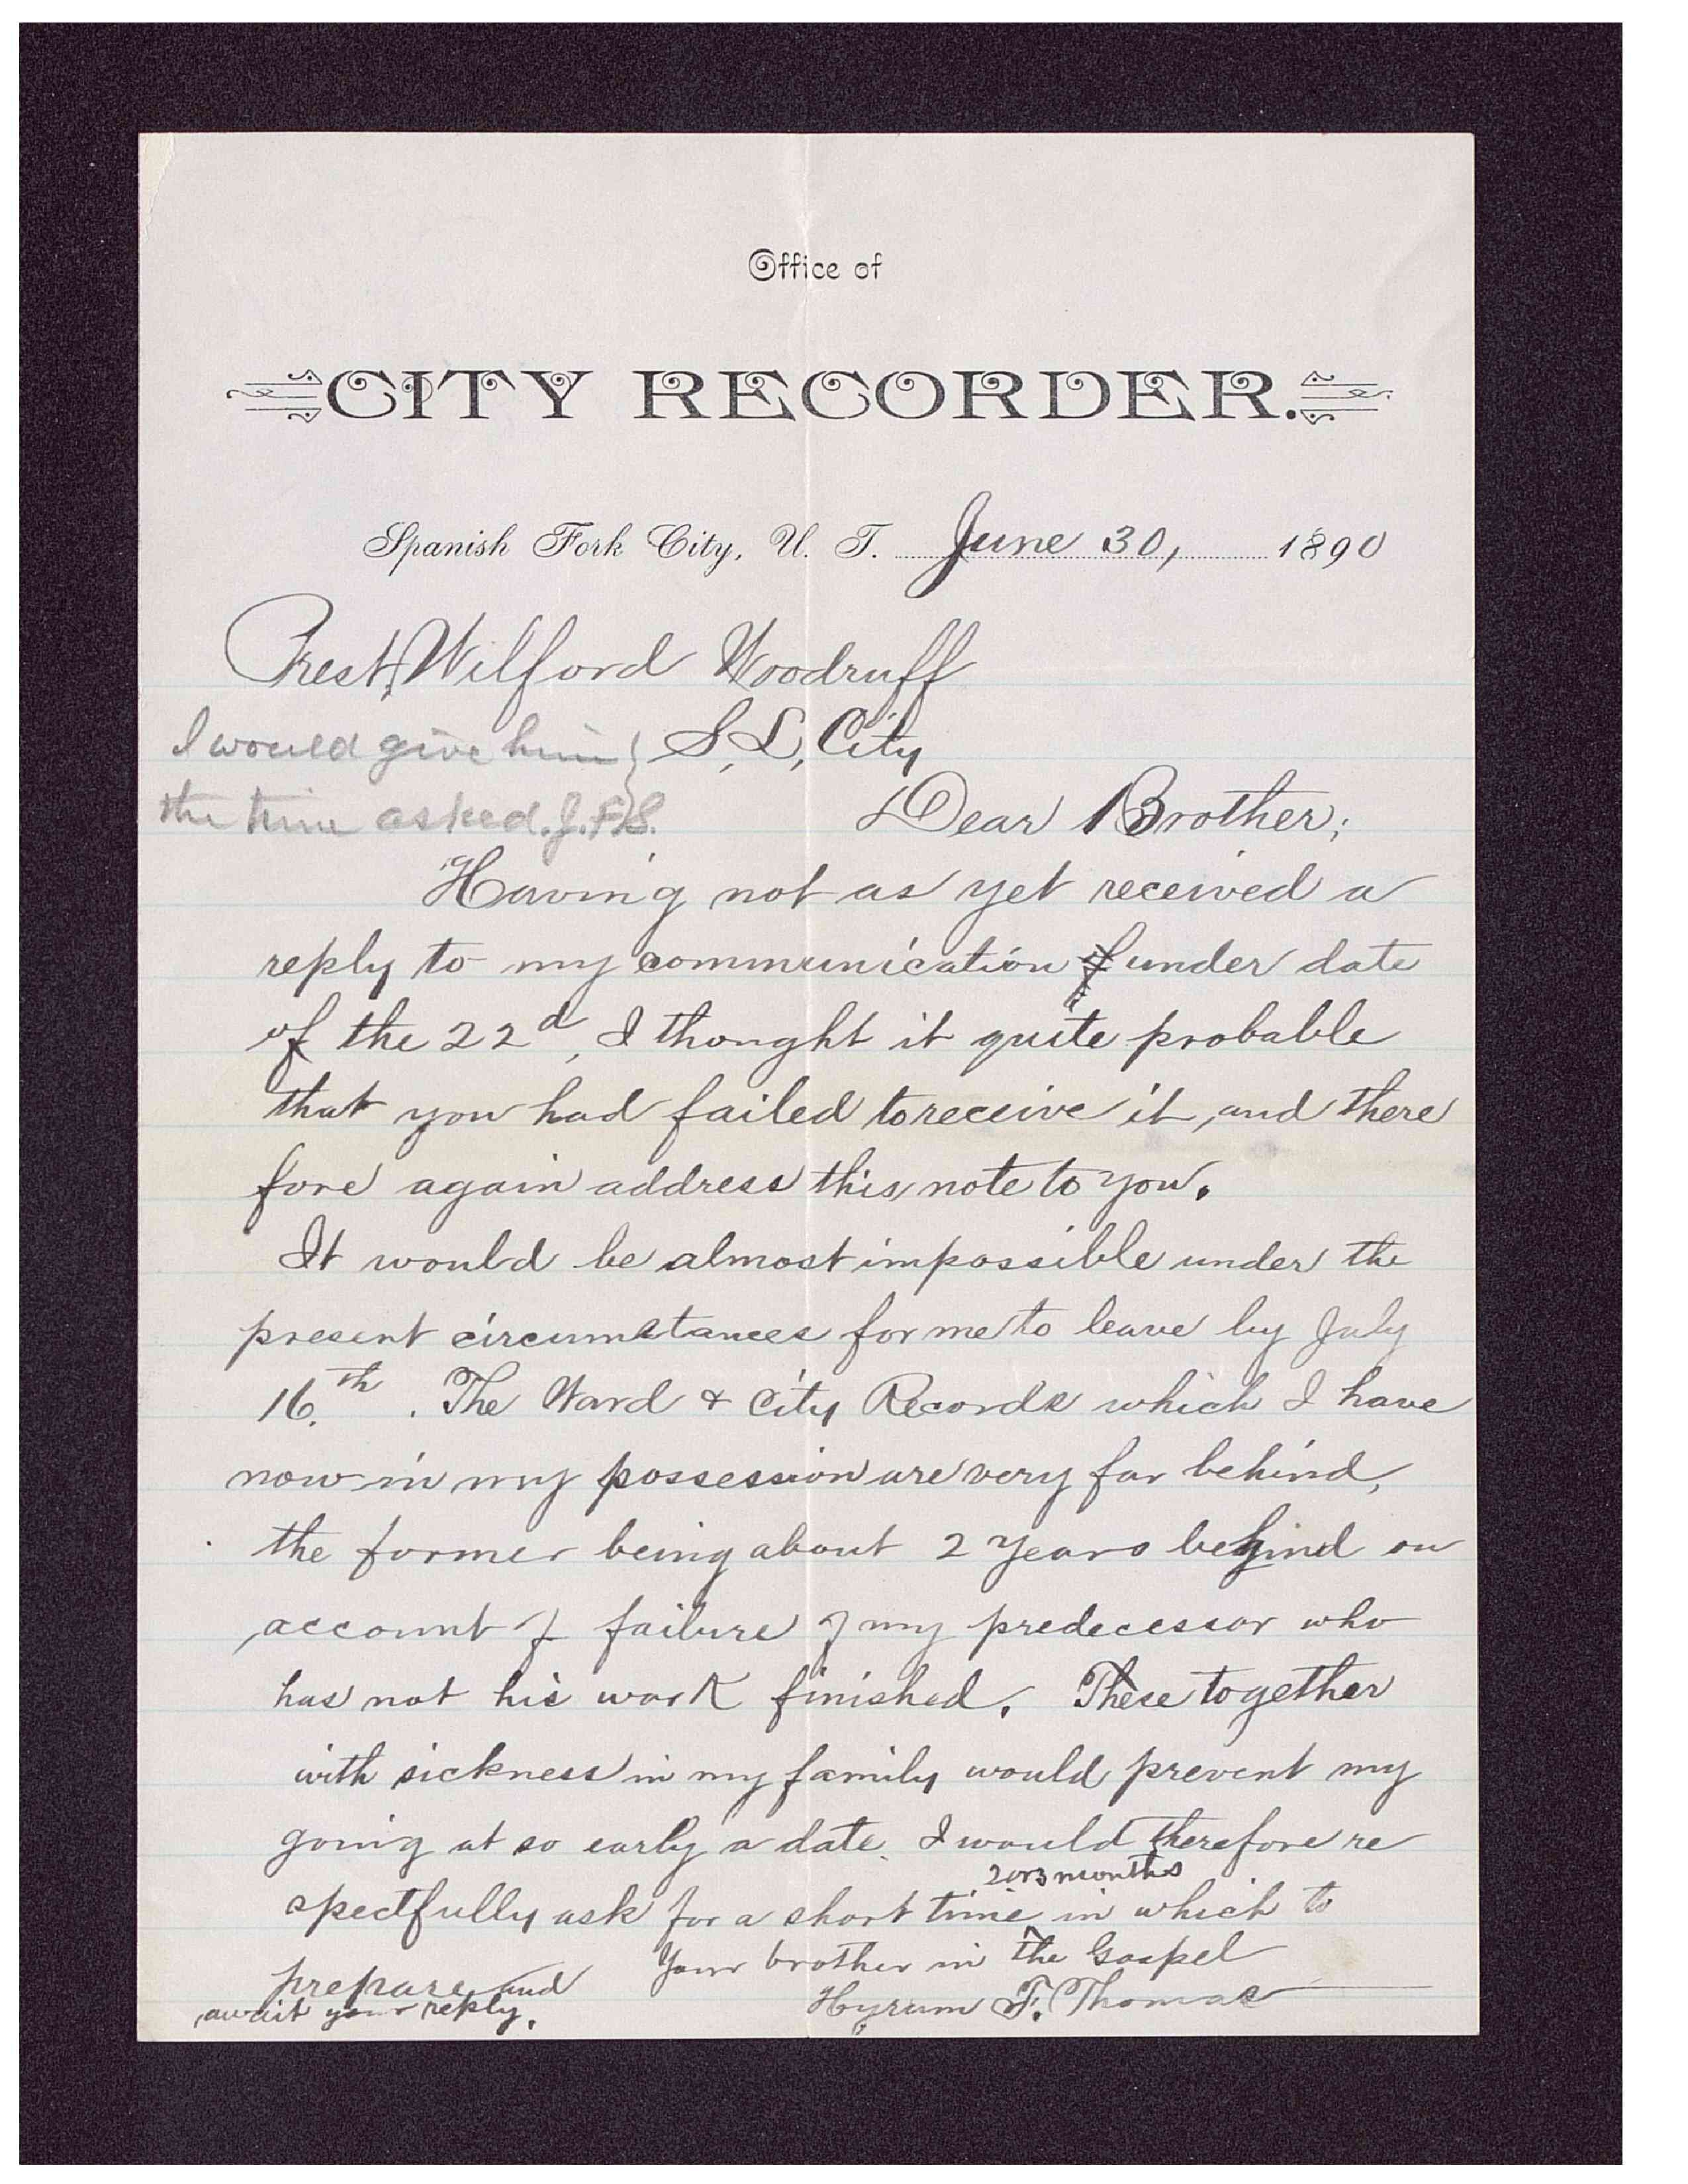 Office of
CITY RECORDER.
Spanish Fork City, U. T. June 30, 1890
Prest. Wilford Woodruff
S. L, City
I would give him
the time asked. J.F.S.
Dear Brother;
Having not as yet received a
reply to my communication of under date
of the 22d, I thought it quite probable
that you had failed to receive it, and there
fore again address this note to you.
It would be almost impossible under the
present circumstances for me to leave by July
16th. The Ward & City Records which I have
now in my possession are very far behind,
the former being about 2 years behind on
account of failure of my predecessor who
has not his work finished. These together
with sickness in my family would prevent my
going at so early a date. I would therefore re
2 or 3 months
spectfully ask for a short time ^ in which to
prepare and
await your reply.
Your brother in the Gospel
Hyrum F. Thomas